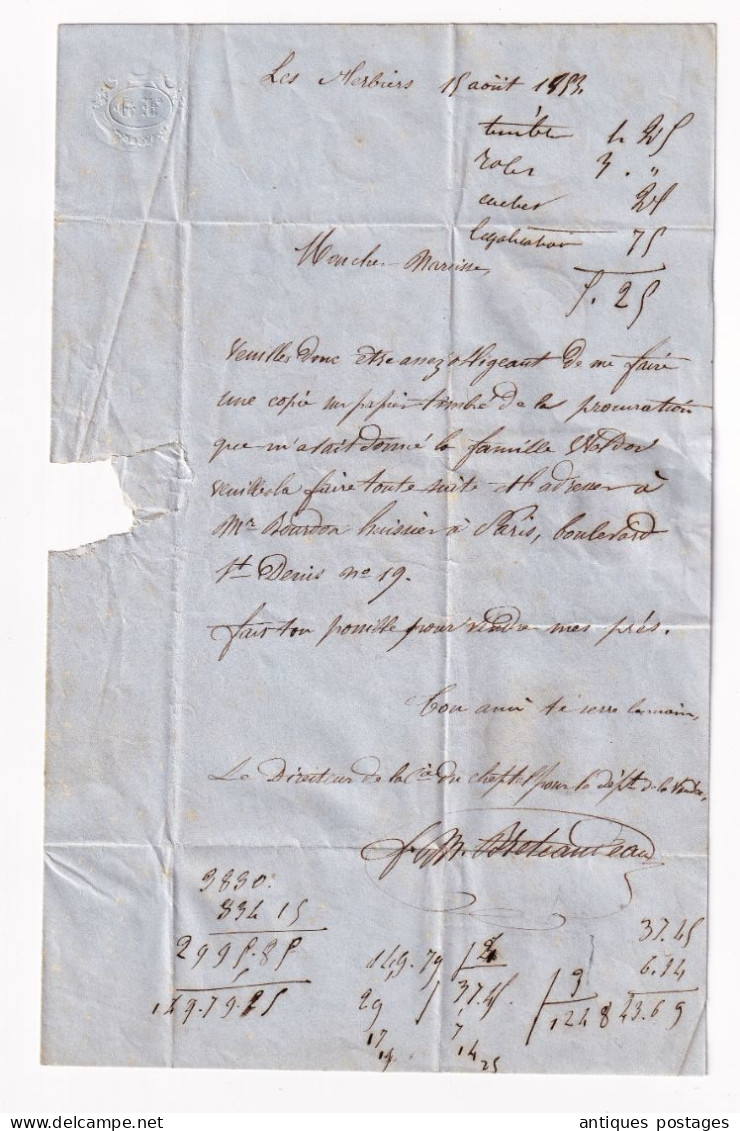 Les Herbiers 15 août 1853
timbre 1. 25
roles 3. "
cachet 25
legalisation 75
5. 25
Mon cher Narcisse,
veuilles donc etre assez obligeant de me faire
une copie sur papier timbré de la procuration
que m'avait donné la famille
veuilles la faire toute suite et l'adresser à
Mr. Bourdon huissier à Paris, boulevard
St. Denis no 19.
fais ton possible pour vendre mes prés.
Ton ami te serre la main,
Le Directeur de la Cie du cheptel pour le dépt. de la Vendée,
3830.
834 15
2995.85
149.79.25
149.79 2
29 37.45
17
14
7
14
25
9
1248
37.45
6.24
43.69
antiques postages